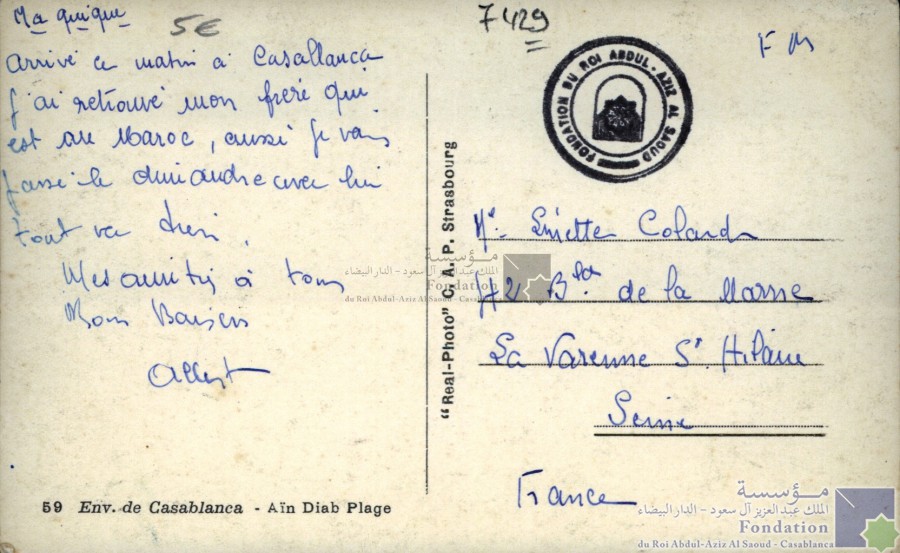 Ma quique
5€
arrivé ce matin à Casablanca
J'ai retrouvé mon frère qui
est au Maroc, aussi je vais
passé le dimandre avec lui
tout va bien.
Mes amitiés à tous
Bons Baisers
Albert
59 Env. de Casablanca - Aïn Diab Plage
"Real-Photo" C. A. P. Strasbourg
7429
F M
FONDATION DU ROI ABDUL-AZIZ AL SAOUD
Colard
42 Bld de la Marne
La Varenne St Hilaire
Seine
France
مؤسسة
الملك عبد العزيز آل سعود - الدار البيضاء
Fondation
du Roi Abdul-Aziz Al Saoud - Casablanca
مؤسسة
الملك عبد العزيز آل سعود - الدار البيضاء
Fondation
du Roi Abdul-Aziz Al Saoud - Casablanca